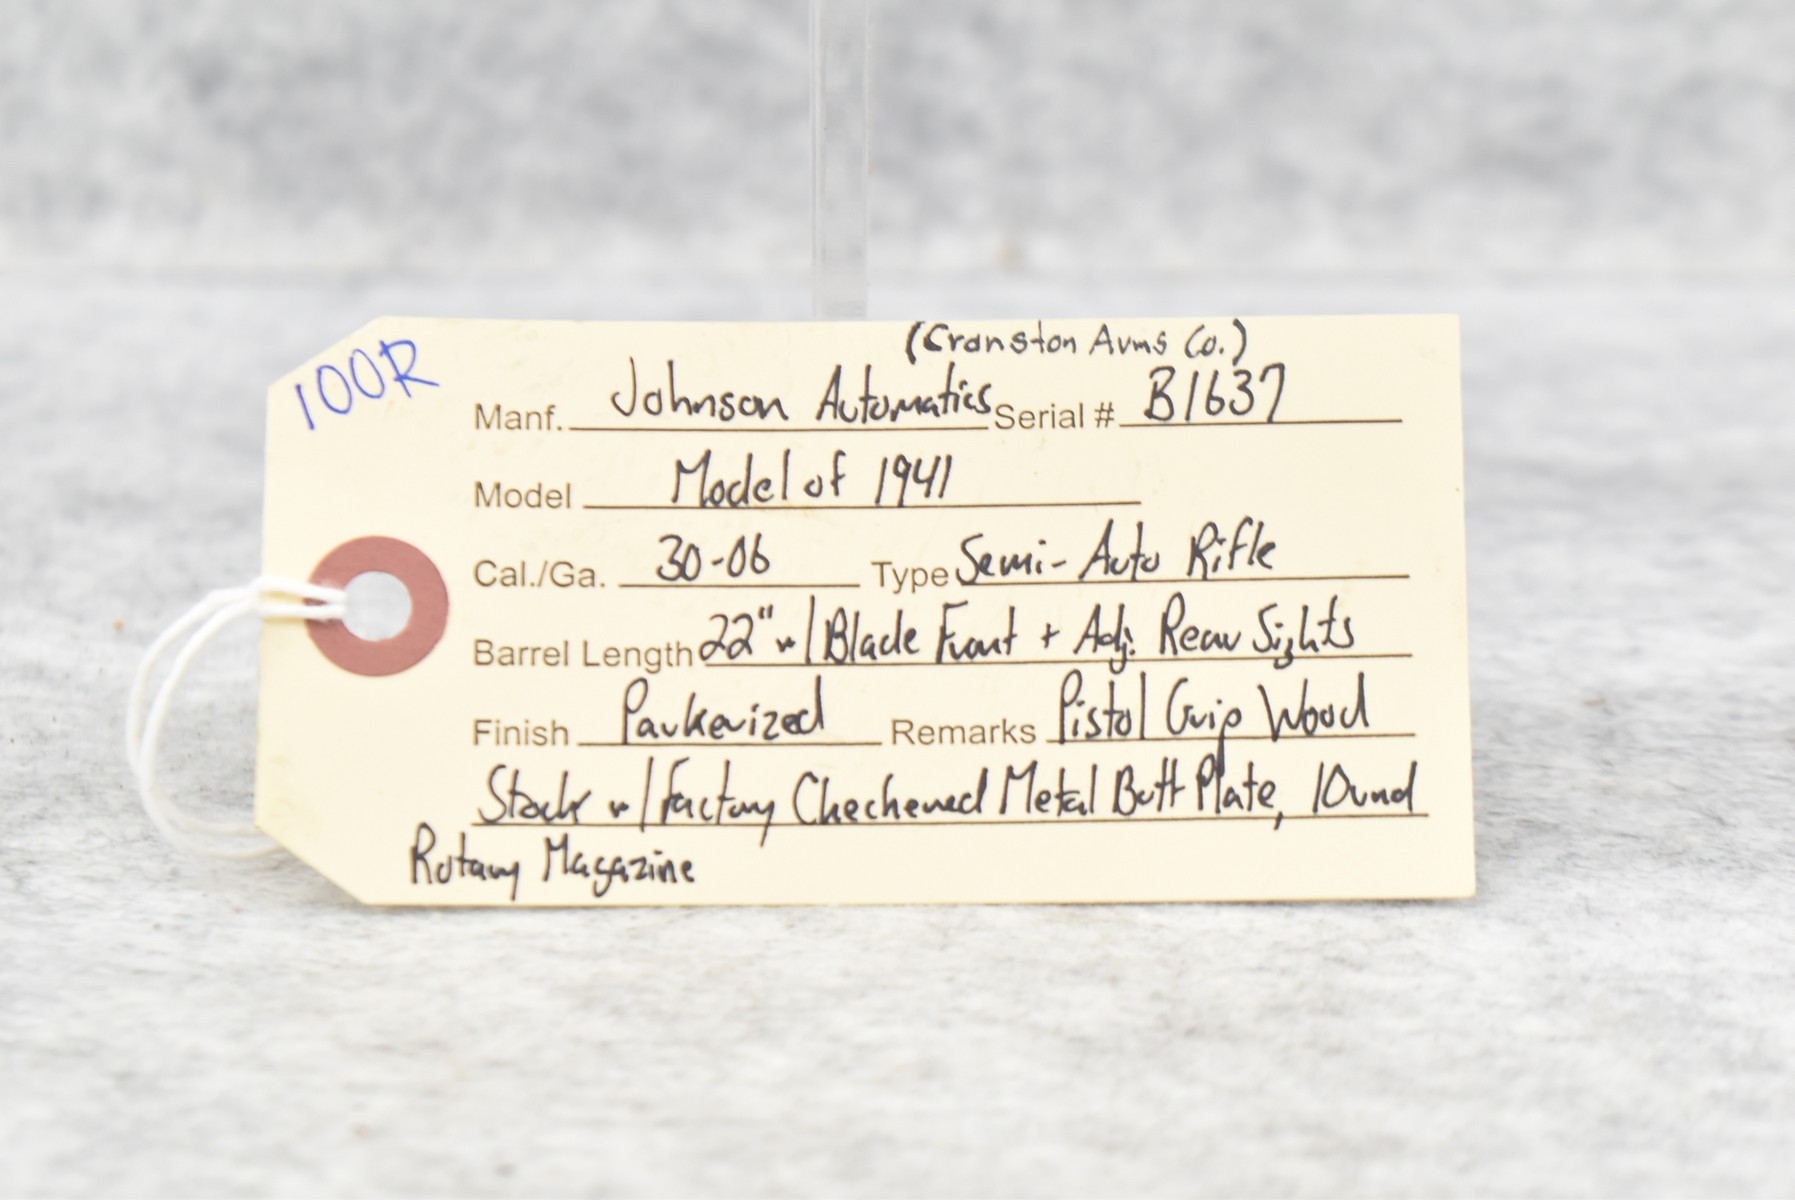 100R
(Cranston Arms Co.)
Manf. Johnson Automatics Serial # B1637
Model Model of 1941
Cal./Ga. 30-06 Type Semi-Auto Rifle
Barrel Length 22" w/ Blade Front + Adj. Rear Sights
Finish Parkerized Remarks Pistol Grip Wood
Stock w/ Factory Checkered Metal Butt Plate, 10rnd
Rotary Magazine